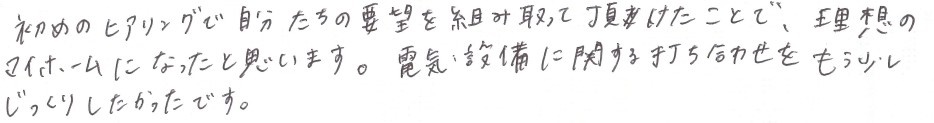 初めのヒアリングで自分たちの要望を組み取って頂けたことで、理想の
マイホームになったと思います。電気・設備に関する打ち合わせをもう少し
じっくりしたかったです。